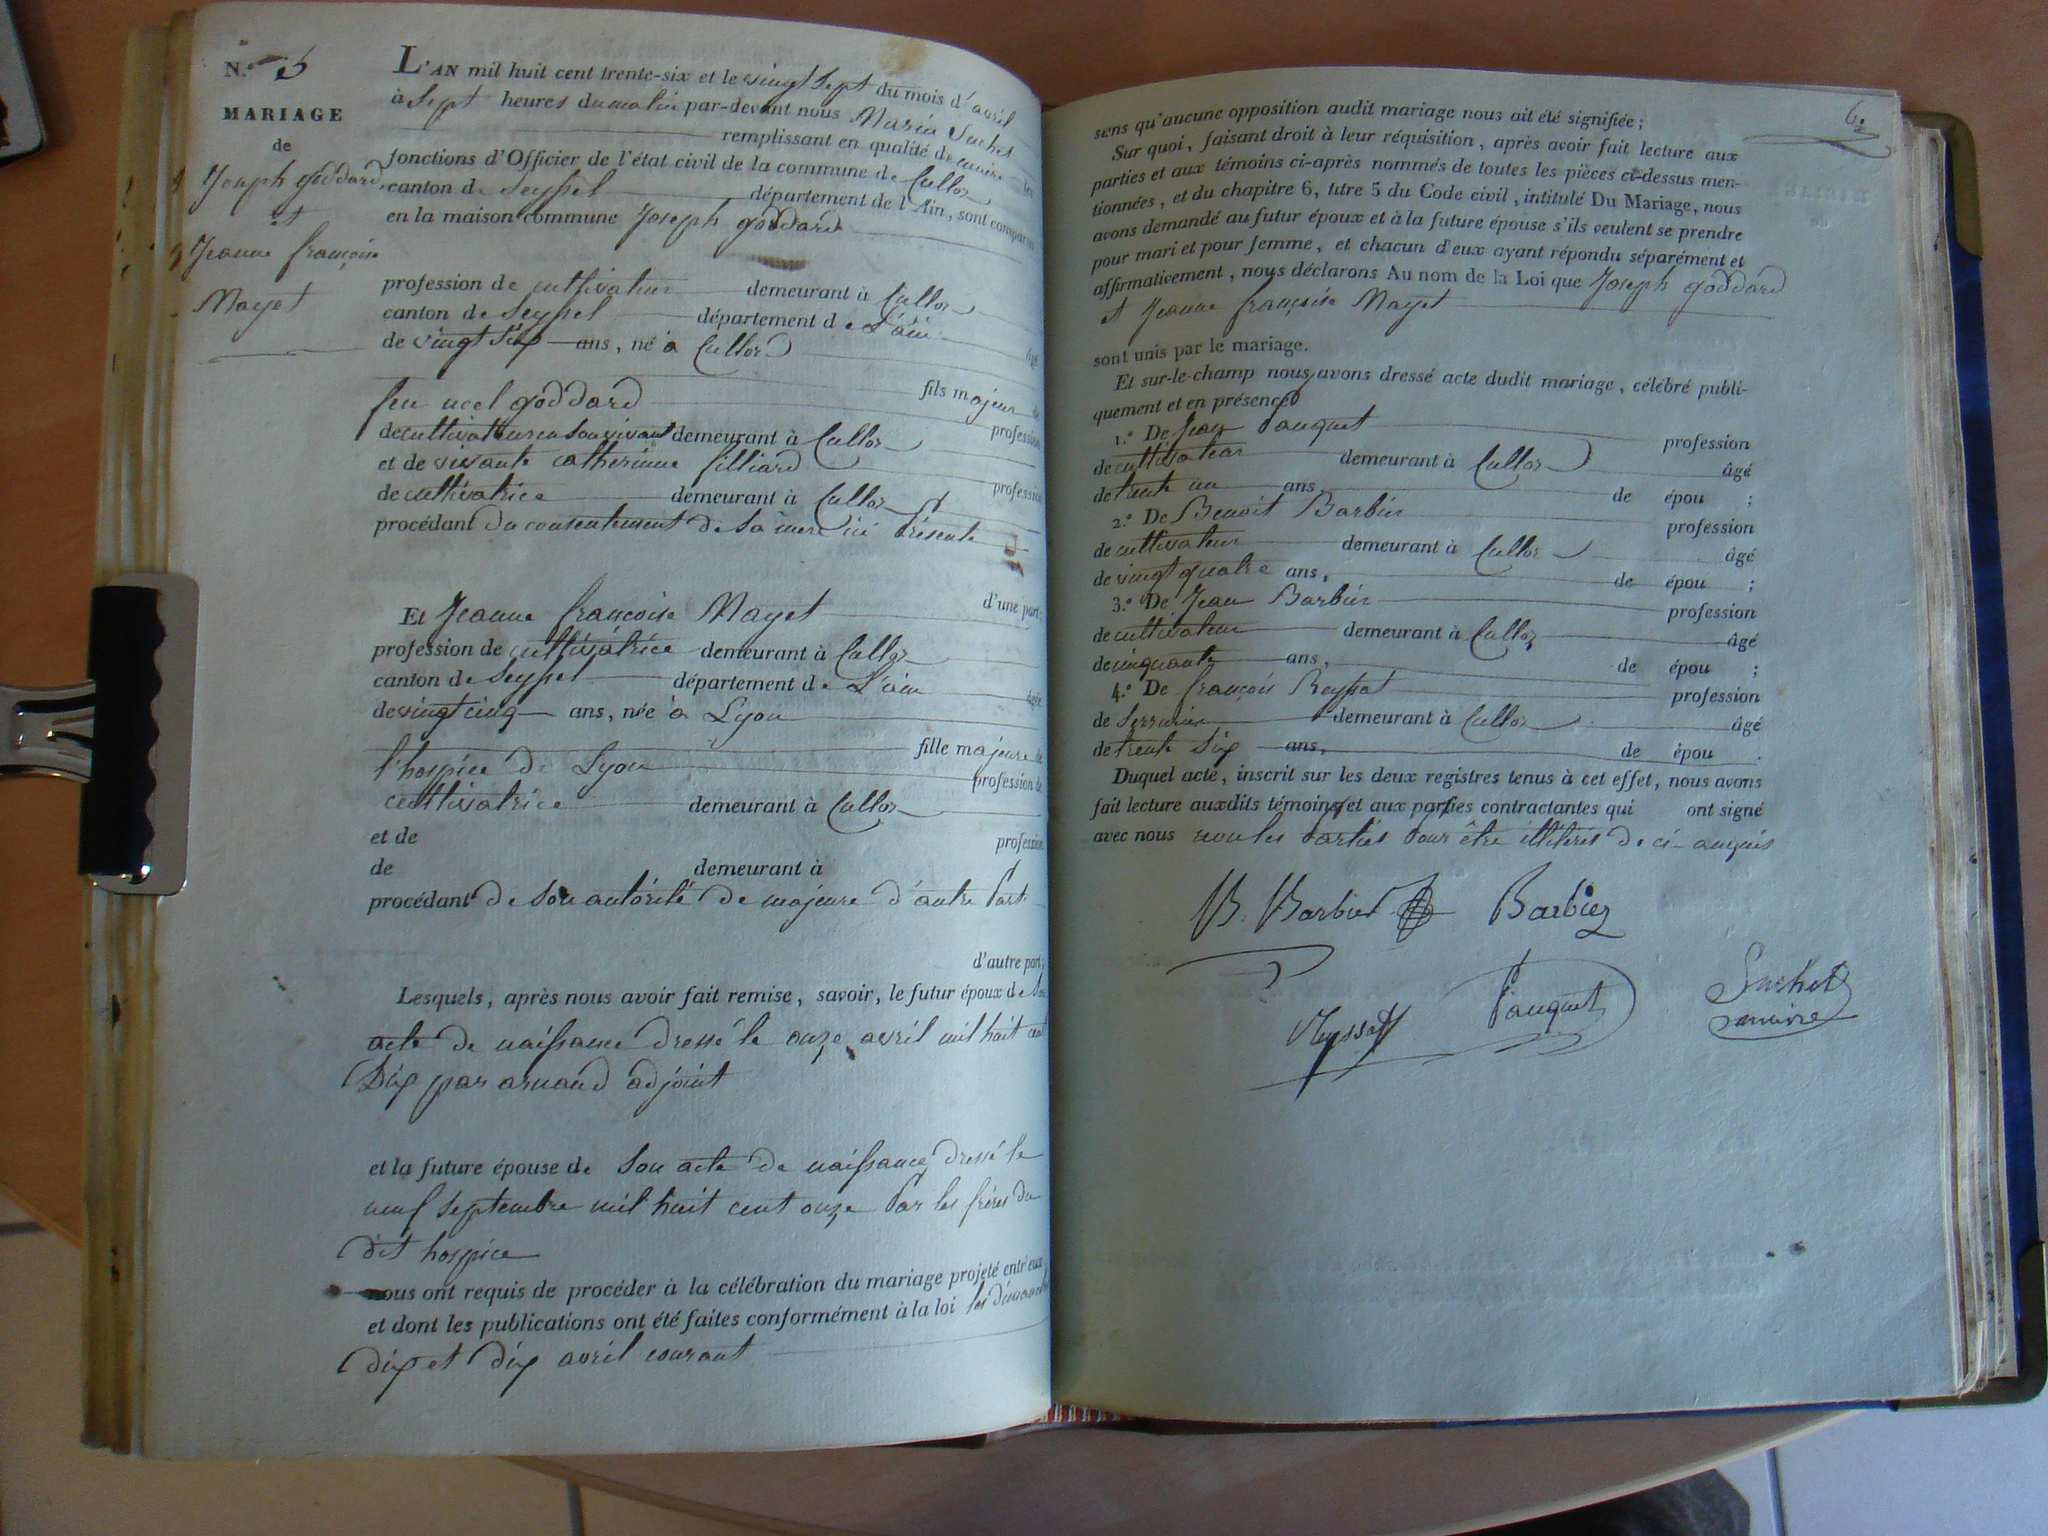 N.o 5
MARIAGE
de
Joseph goddard
et
Jeanne françoise
Mayet
L'AN mil huit cent trente-six et le vingt sept du mois d'avril
à Sept heures du matin par-devant nous Marin Suchet
remplissant en qualité de maire les
fonctions d'Officier de l'état civil de la commune de Culloz
canton de Seyssel département de l'Ain, sont comparus
en la maison commune Joseph goddard
profession de cultivateur demeurant à Culloz
canton de Seyssel département de L'ain
âgé
de vingt six ans, né à Culloz
fils majeur de
feu noel goddard
profession
de cultivateur en son vivant demeurant à Culloz
et de vivante catherinne filliard
profession
de cultivatrice demeurant à Culloz et
procédant du consentement de Sa mere ici Présente
d'une part;
Et Jeanne françoise Mayet
profession de cultivatrice demeurant à Culloz
canton de Seyssel département de L'ain
âgée
de vingt cinq ans, née à Lyon
fille majeure de
l'hospice de Lyon
profession de
cultivatrice demeurant à Culloz
et de
profession
de demeurant à
procédant de Son autorité de majeure d'autre Part
d'autre part;
Lesquels, après nous avoir fait remise, savoir, le futur époux de Son
acte de naissance dressé le onze avril mil huit cent
Dix par arnaud adjoint
et la future épouse de Son acte de naissance dressé le
neuf Septembre mil huit cent onze Par les frères du
dit hospice
nous ont requis de procéder à la célébration du mariage projeté entr'eux
et dont les publications ont été faites conformément à la loi les dimanches
dix et dix avril courant
6.
sens qu'aucune opposition audit mariage nous ait été signifiée;
Sur quoi, faisant droit à leur réquisition, après avoir fait lecture aux
parties et aux témoins ci-après nommés de toutes les pièces ci-dessus men-
tionnées, et du chapitre 6, titre 5 du Code civil, intitulé Du Mariage, nous
avons demandé au futur époux et à la future épouse s'ils veulent se prendre
pour mari et pour femme, et chacun d'eux ayant répondu séparément et
affirmativement, nous déclarons Au nom de la Loi que Joseph goddard
et Jeanne françoise Mayet
sont unis par le mariage.
Et sur-le-champ nous avons dressé acte dudit mariage, célébré publi-
quement et en présence
1.o De Jean Pauquet
profession
de cultivateur demeurant à Culloz
âgé
de trente un ans, de épou ;
2.o De Benoit Barbier
profession
de cultivateur demeurant à Culloz
âgé
de vingt quatre ans, de épou ;
3.o De Jean Barbier
profession
de cultivateur demeurant à Culloz
âgé
de cinquante ans, de épou ;
4.o De françois Reyssat
profession
de Serrurier demeurant à Culloz
âgé
de trente Six ans, de épou .
Duquel acte, inscrit sur les deux registres tenus à cet effet, nous avons
fait lecture auxdits témoins et aux parties contractantes qui ont signé
avec nous non les Parties Pour être illitérés de ci-anquis
B. Barbier Barbiez
Reyssat Pauquet Suchet
maire